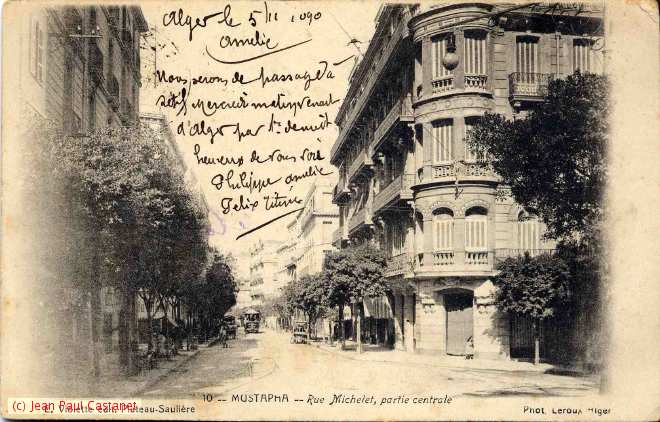 Alger le 5/11 1090
Amélie
Nous serons de passage à
Sétif Mercredi matin venant
d'Alger par
heureux de vous voir
Philippe Amélie
Felix
10 -- MUSTAPHA -- Rue Michelet, partie centrale
(c) Jean Paul Castanet
E. Violette edit. Plateau-Saulière
Phot. Leroux Alger